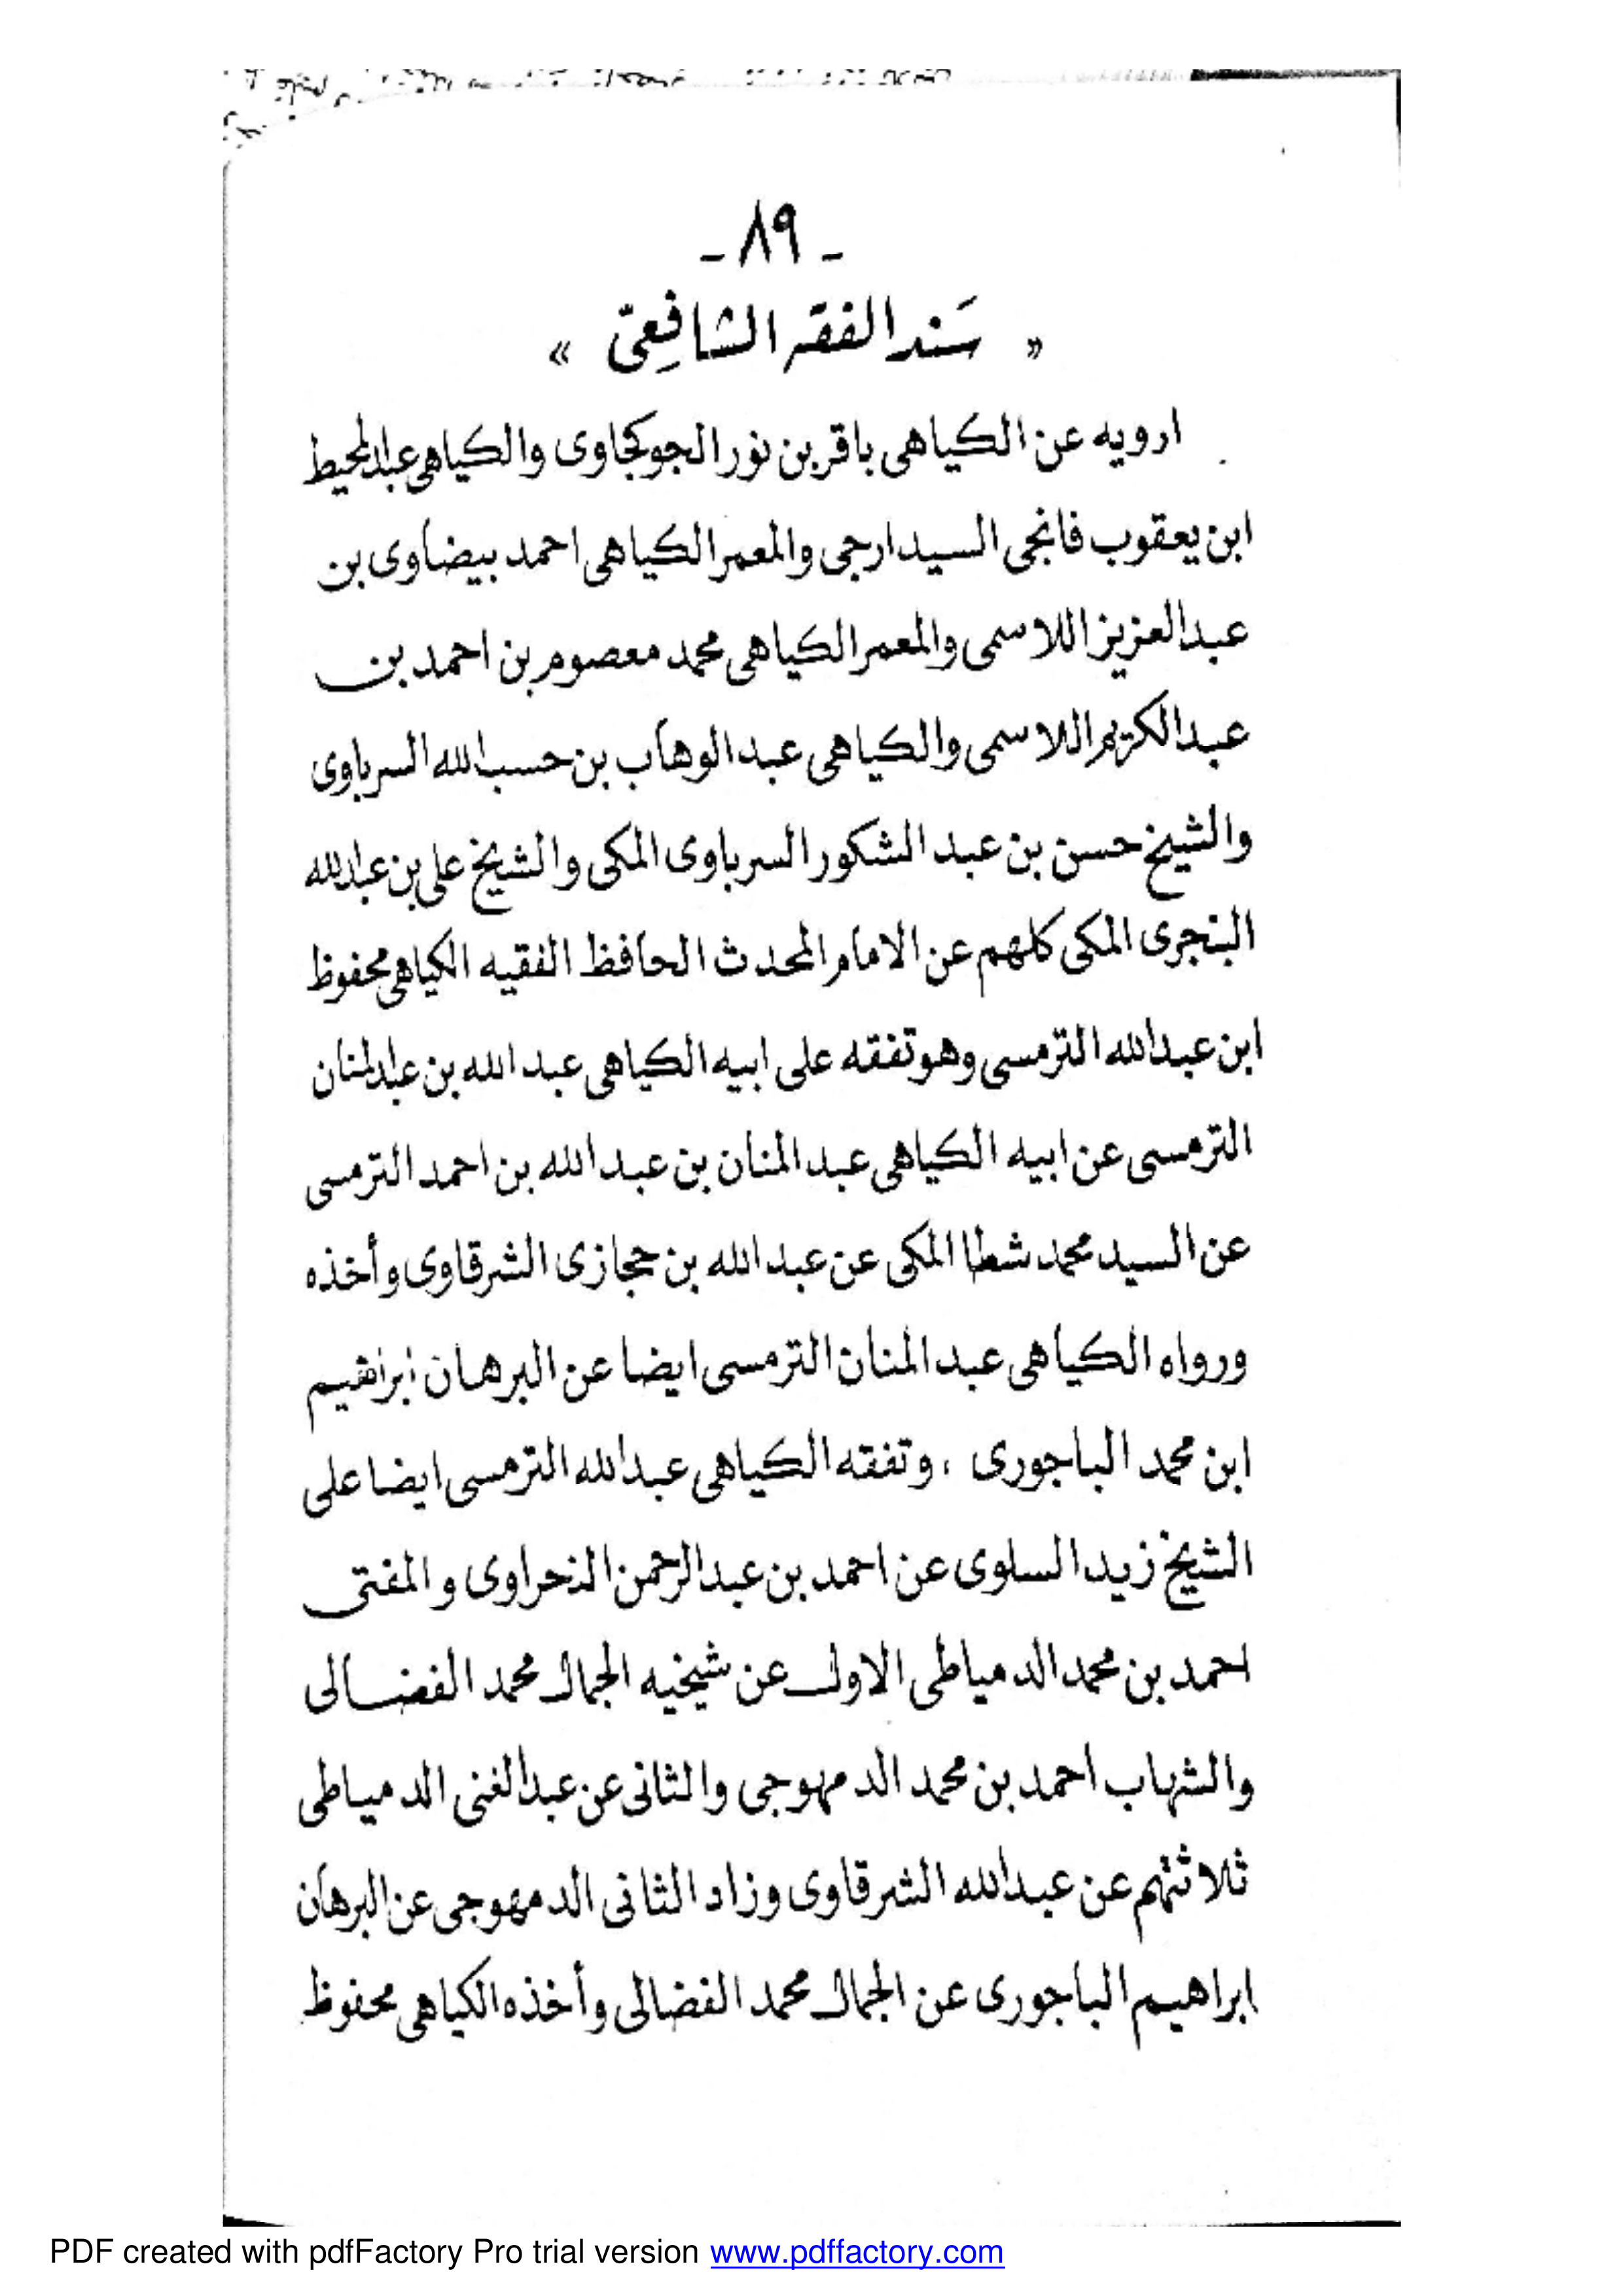 - ٨٩ -
« سَند الفقه الشافِعىّ »
ارويه عن الكياهى باقر بن نور الجوكجاوى والكياهى عبد المحيط
ابن يعقوب فانجى السيدارجى والمعمر الكياهى احمد بيضاوى بن
عبد العزيز اللاسمى والمعمر الكياهى محمد معصوم بن احمد بن
عبد الكريم اللاسمى والكياهى عبد الوهاب بن حسب الله السرباوى
والشيخ حسن بن عبد الشكور السرباوى المكى والشيخ على بن عبد الله
البنجرى المكى كلهم عن الامام المحدث الحافظ الفقيه الكياهى محفوظ
ابن عبد الله الترمسى وهو تفقه على ابيه الكياهى عبد الله بن عبد المنان
الترمسى عن ابيه الكياهى عبد المنان بن عبد الله بن احمد الترمسى
عن السيد محمد شطا المكى عن عبد الله بن حجازى الشرقاوى وأخذه
ورواه الكياهى عبد المنان الترمسى ايضا عن البرهان ابراهيم
ابن محمد الباجورى ، وتفقه الكياهى عبد الله الترمسى ايضا على
الشيخ زيد السلوى عن احمد بن عبد الرحمن النحراوى و المفتى
احمد بن محمد الدمياطى الاول عن شيخيه الجمال محمد الفضالى
والشهاب احمد بن محمد الدمهوجى والثانى عن عبد الغنى الدمياطى
ثلاثتهم عن عبد الله الشرقاوى وزاد الثانى الدمهوجى عن البرهان
ابراهيم الباجورى عن الجمال محمد الفضالى وأخذه الكياهى محفوظ
PDF created with pdfFactory Pro trial version www.pdffactory.com